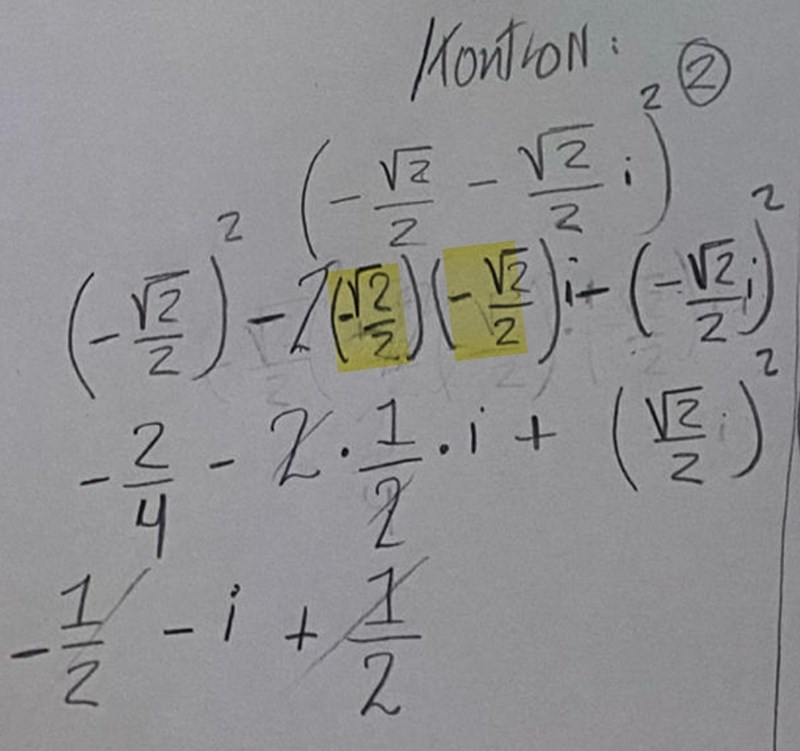 Kontroll: ②
(-√2/2 - √2/2 i)²
(-√2/2)² - 2(-√2/2)(-√2/2)i + (-√2/2 i)²
-2/4 - 2 · 1/2 · i + (√2/2 i)²
-1/2 - i + 1/2